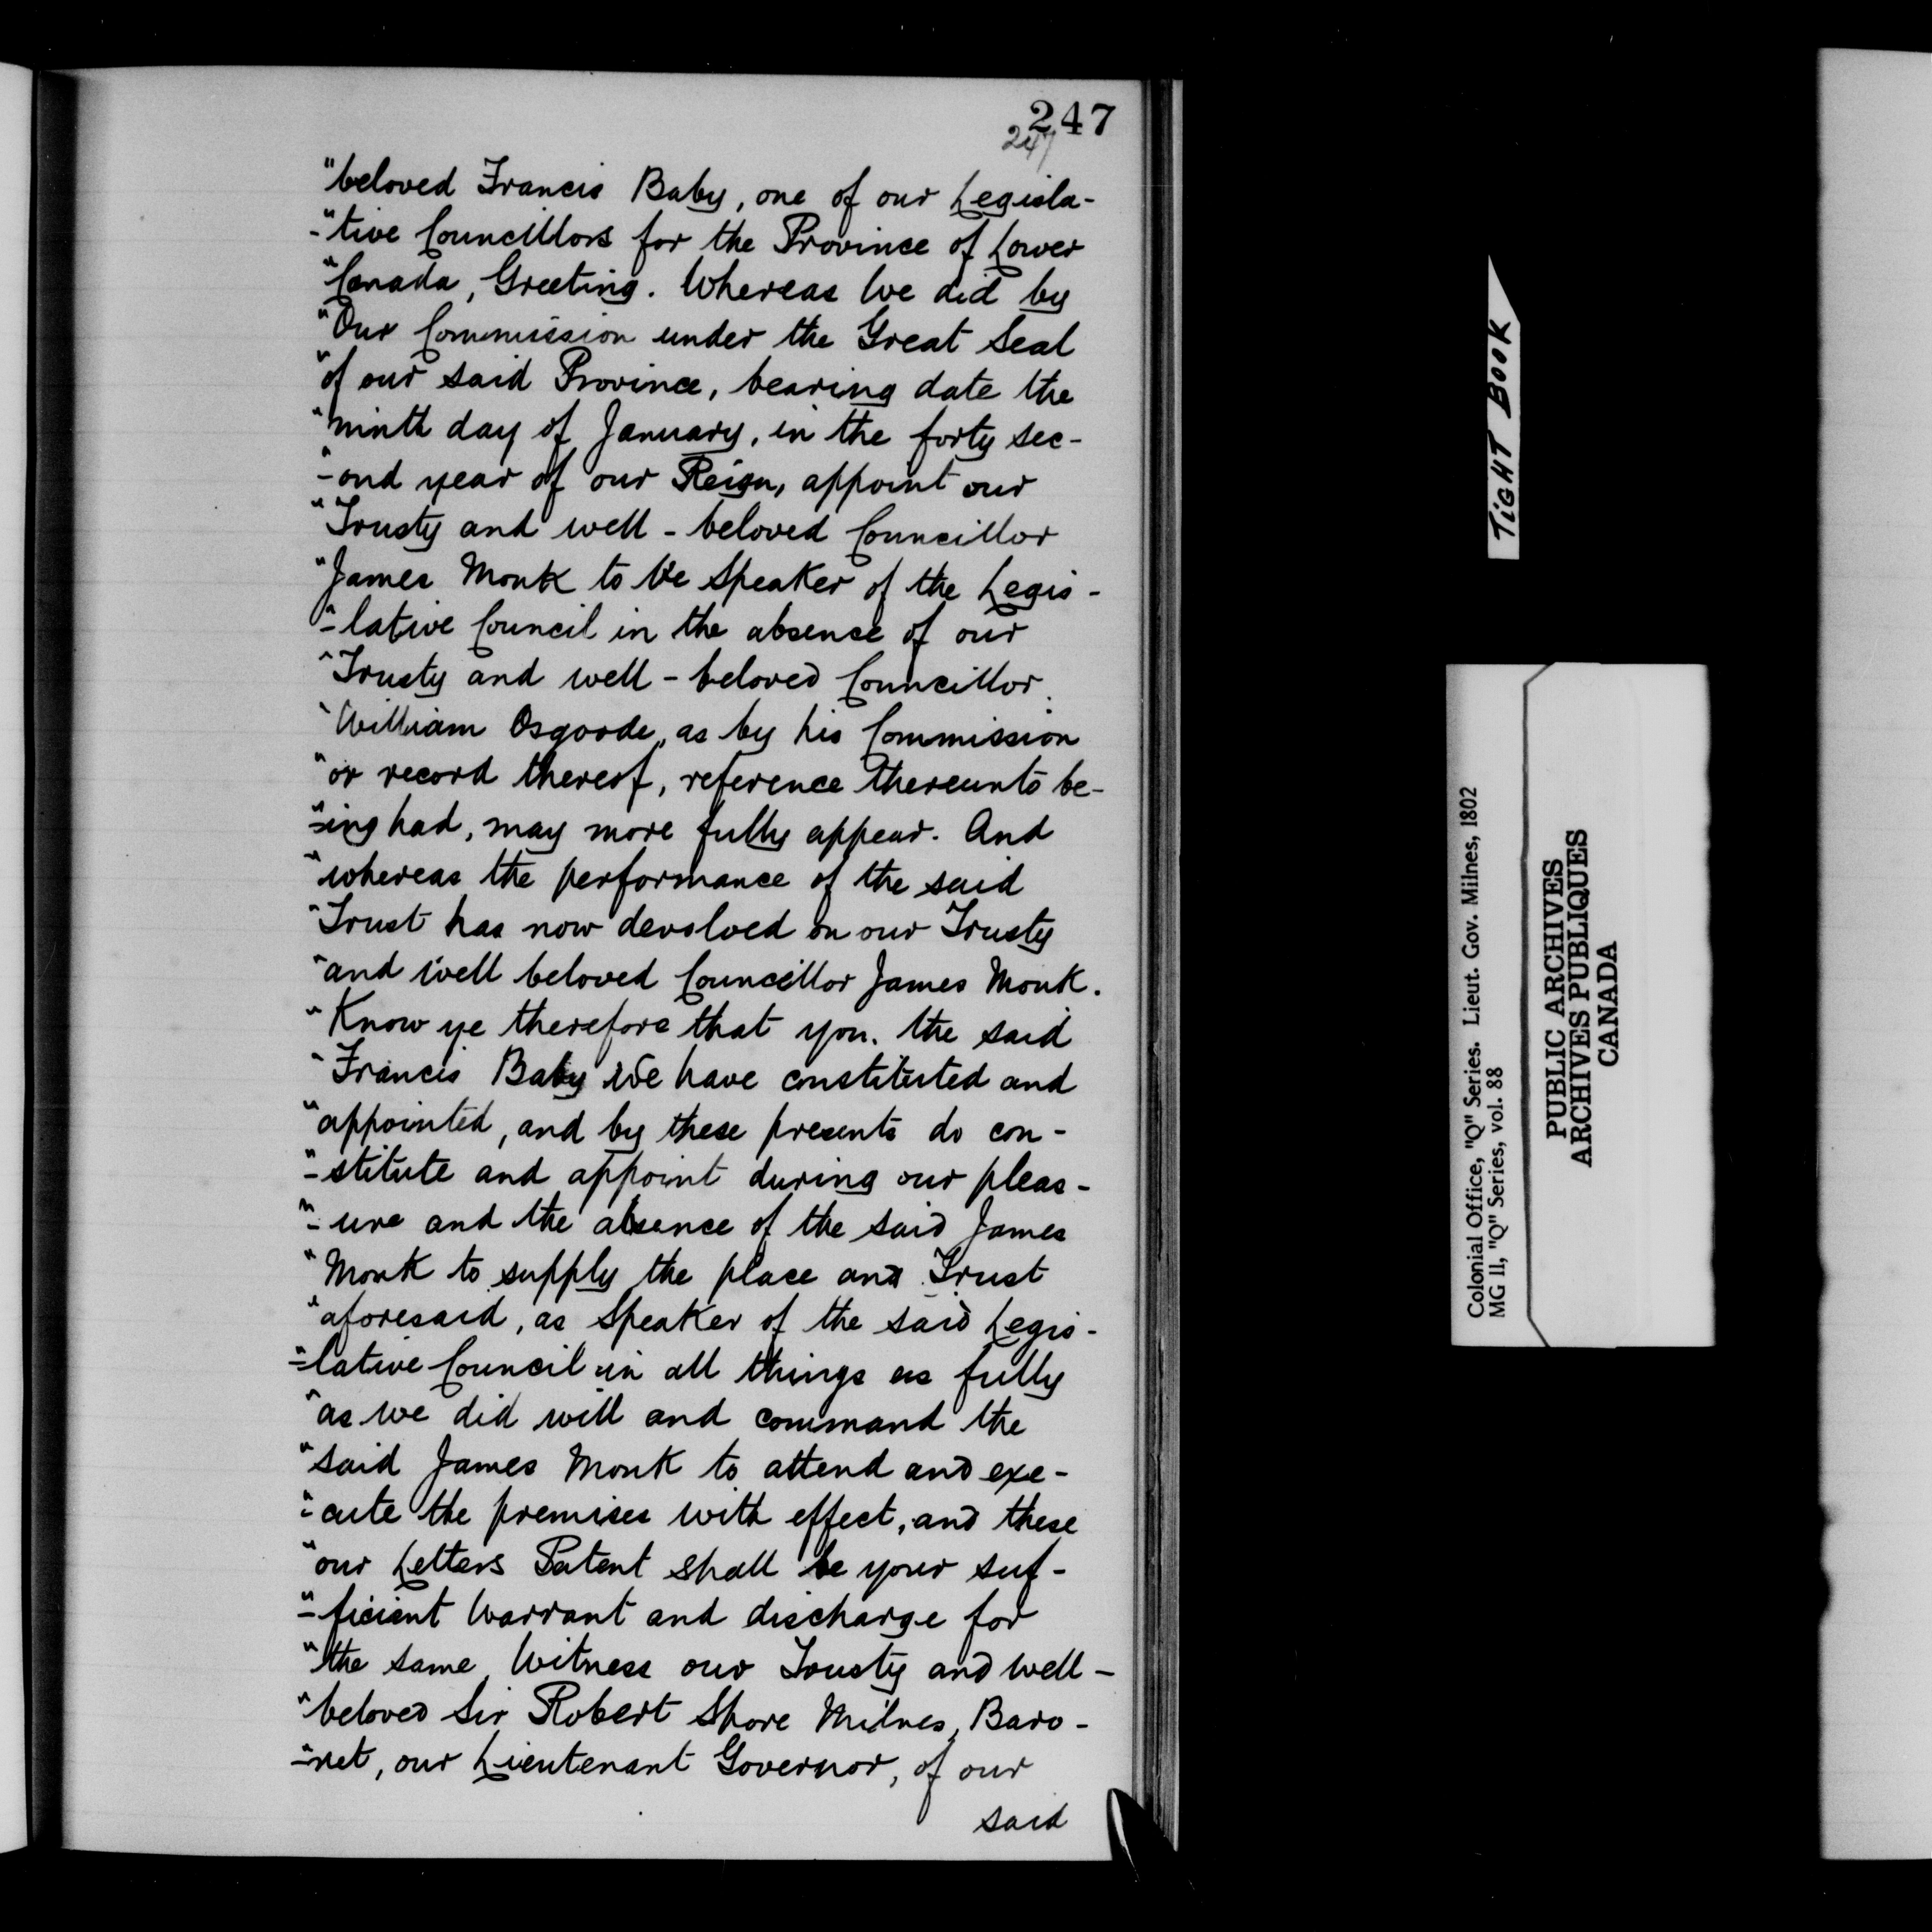 247
247
"beloved Francis Baby, one of our Legisla-
"-tive Councillors for the Province of Lower
"Canada, Greeting. Whereas We did by
"Our Commission under the Great Seal
"of our said Province, bearing date the
"ninth day of January, in the forty sec-
"-ond year of our Reign, appoint our
"Trusty and well-beloved Councillor
"James Monk to be Speaker of the Legis-
"-lative Council in the absence of our
"Trusty and well-beloved Councillor
"William Osgoode, as by his Commission
"or record thereof, reference thereunto be-
"-ing had, may more fully appear. And
"whereas the performance of the said
"Trust has now devolved on our Trusty
"and well beloved Councillor James Monk.
"Know ye therefore that you. the said
"Francis Baby We have constituted and
"appointed, and by these presents do con-
"-stitute and appoint during our pleas-
"-ure and the absence of the said James
"Monk to supply the place and Trust
"aforesaid, as Speaker of the said Legis-
"-lative Council in all things as fully
"as we did will and command the
"said James Monk to attend and exe-
"-cute the premises with effect, and these
"our Letters Patent shall be your suf-
"-ficient Warrant and discharge for
"the same, Witness our Trusty and well-
"beloved Sir Robert Shore Milnes, Baro-
"-net, our Lieutenant Governor, of our
said
TIGHT BOOK
Colonial Office, "Q" Series. Lieut. Gov. Milnes, 1802
MG 11, "Q" Series, vol. 88
PUBLIC ARCHIVES
ARCHIVES PUBLIQUES
CANADA